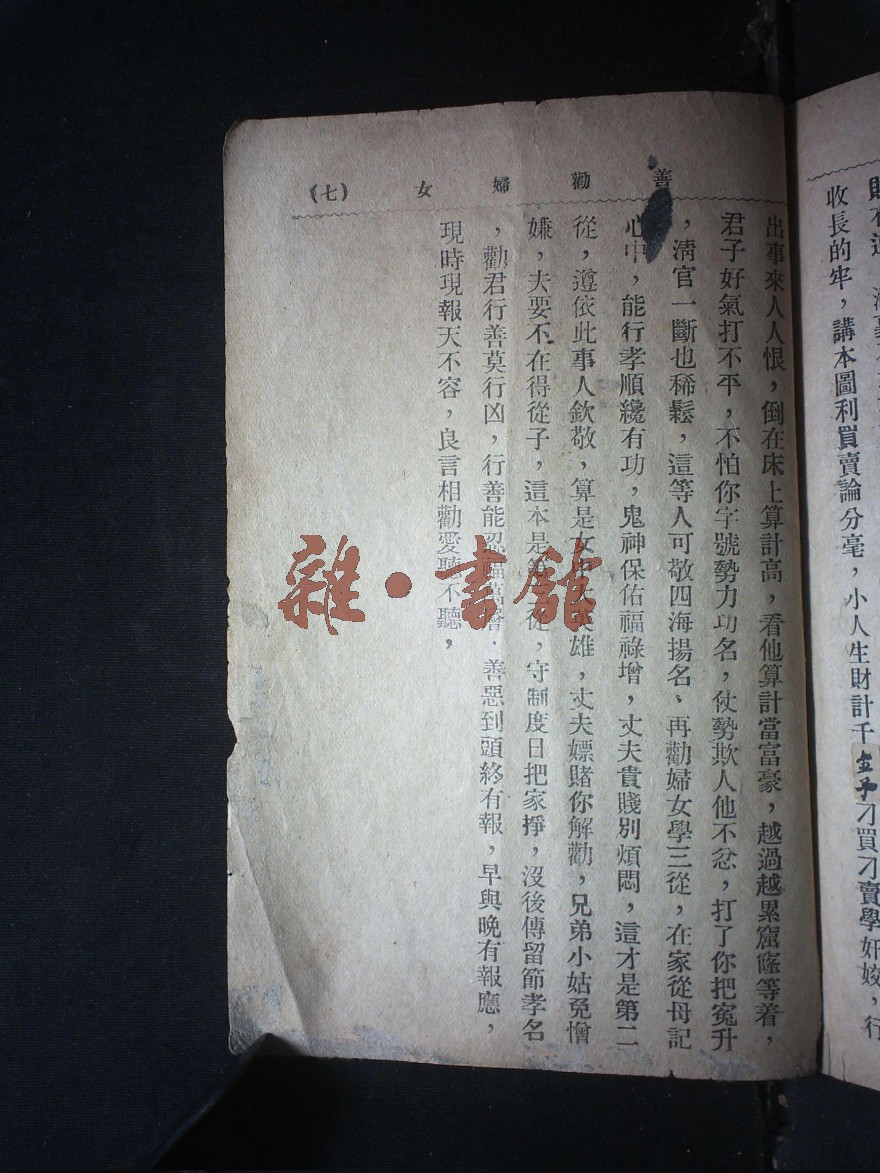 財有道
收長的牢，講本圖利買賣論分毫，小人生財計千金子刁買刁賣學奸姣，行
善勸婦女（七）
出事來人人恨，倒在床上算計高，看他算計當富豪，越過越累窟窿等着，
君子好氣打不平，不怕你字號勢力功名，仗勢欺人他不忿，打了你把冤升
，淸官一斷也稀鬆，這等人可敬四海揚名、再勸婦女學三從，在家從母記
心中，能行孝順纔有功，鬼神保佑福祿增，丈夫貴賤別煩悶，這才是第二
從，遵依此事人欽敬，算是女中大英雄，丈夫嫖賭你解勸，兄弟小姑免憎
嫌，夫要不在得從子，這本是第三從，守制度日把家掙，沒後傳留節孝名
，勸君行善莫行凶，行善能忍福高增．善惡到頭終有報，早與晚有報應，
現時現報天不容，良言相勸愛聽不聽，
雜·書館